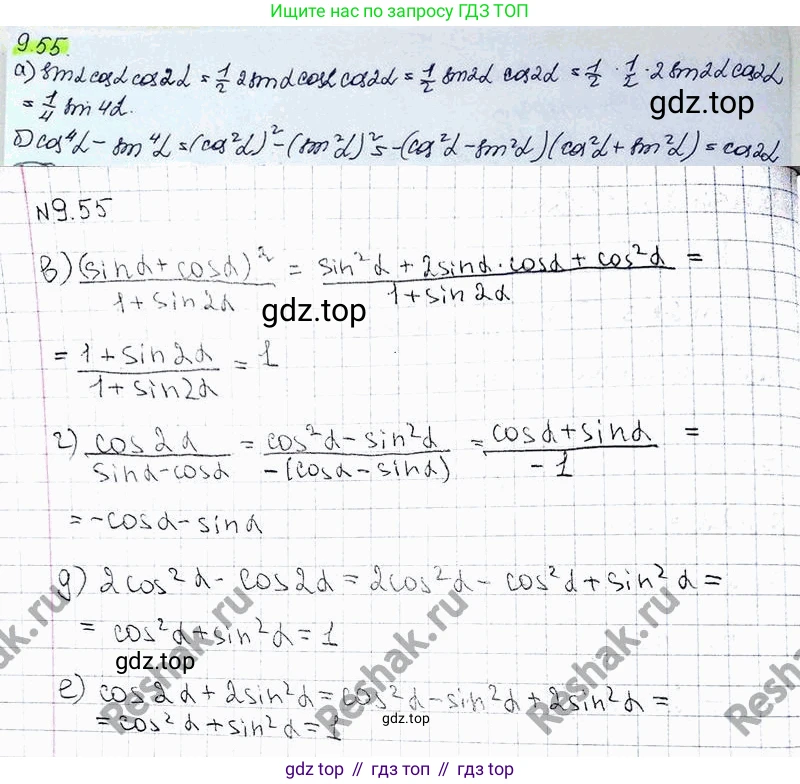 Ищите нас по запросу ГДЗ ТОП
9.55.
а) sinα cosα cos2α = 1/2 2sinα cosα cos2α = 1/2 sin2α cos2α = 1/2 · 1/2 · 2 sin2α cos2α
= 1/4 sin 4α.
gdz.top
б) cos⁴α - sin⁴α = (cos²α)² - (sin²α)² = -(cos²α - sin²α)(cos²α + sin²α) = cos2α
№9.55
в) (sinα + cosα)² / 1 + sin2α = sin²α + 2sinα·cosα + cos²α / 1 + sin2α =
gdz.top
= 1 + sin2α / 1 + sin2α = 1
г) cos2α / sinα - cosα = cos²α - sin²α / -(cosα - sinα) = cosα + sinα / -1 =
= -cosα - sinα
д) 2cos²α - cos2α = 2cos²α - cos²α + sin²α =
= cos²α + sin²α = 1
gdz.top
е) cos2α + 2sin²α = cos²α - sin²α + 2sin²α =
= cos²α + sin²α = 1
gdz.top
Reshak.ru
Reshak.ru
Reshak.ru
gdz top // гдз топ // gdz.top